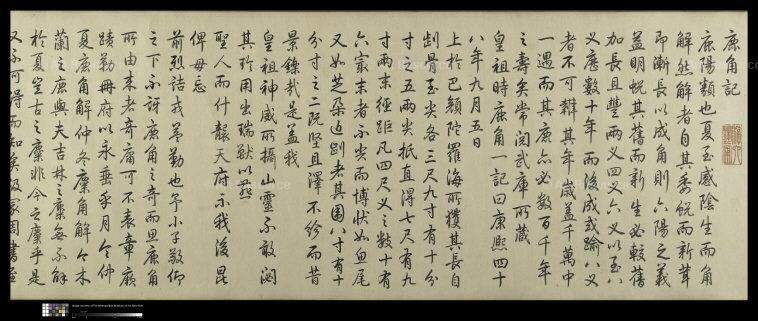 鹿角記
鹿陽類也夏至感陰生而角
解然解者自其秀蛻而新茸
即漸長以成角則亦陽之義
益明蛻其舊而新生必較舊
加長且豐兩叉四叉六叉以至八
叉應數十年而後成或踰八叉
者不可辨其年歲蓋千萬中
一遇而其鹿亦必數百千年
之壽矣常閱武庫所藏
皇祖時鹿角一記曰康熙四十
八年九月五日
上於巴顏陀羅海所獲其長自
骨至尖各三尺九寸有十分
寸之五兩尖抵直得七尺有九
寸兩末徑距凡四尺叉之數十有
六末者不尖而博狀如魚尾
又如芝朶近者其圍八寸有十
分寸之二既堅且澤不紾而昔
景鑠哉是蓋我
皇祖神威所攝山靈不敢閟
其所用出瑞獸以燕
聖人而什襲天府示我後昆
俾毋忘
前烈詰戎勤也予小子敬仰
之下不訝鹿角之奇而思鹿角
所由來者奇庸可不表章厥
蹟勒冊府以永垂乎月令仲
夏鹿角解仲冬麋角解今木
蘭之鹿與夫吉林之麋無不解
於夏豈古之麋非今之麋乎是
又不可得而知矣汲冢周書至